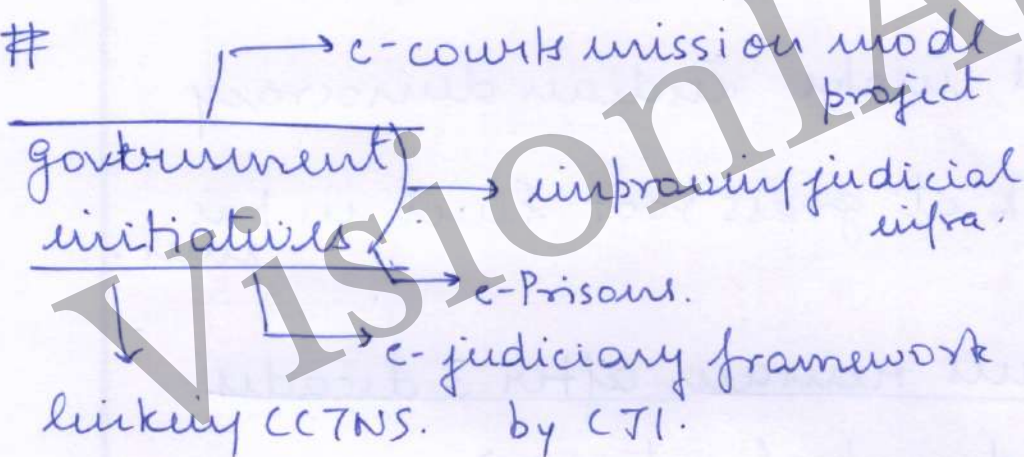 #
e-courts mission mode
project
government
initiatives
improving judicial
infra.
e-Prisons.
e-judiciary framework
by CJI.
linking CCTNS.
VisionIA